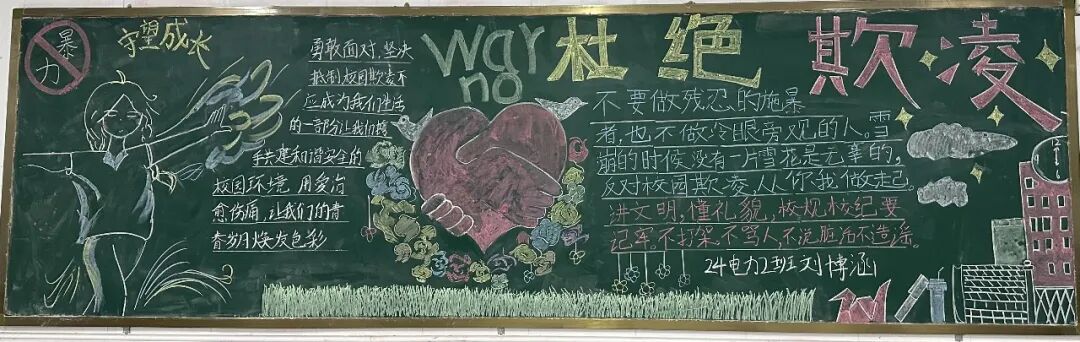 暴力
守望成长
勇敢面对,坚决
抵制校园欺凌不
应成为我们生活
的一部分让我们携
手共建和谐安全的
校园环境 用爱治
愈伤痛,让我们的青
春岁月焕发色彩
war
no
杜绝欺凌
不要做残忍的施暴
者,也不做冷眼旁观的人。雪
崩的时候没有一片雪花是无辜的,
反对校园欺凌,从你我做起
讲文明,懂礼貌,校规校纪要
记牢。不打架。不骂人,不说脏话不造谣。
24电力2班刘博涵